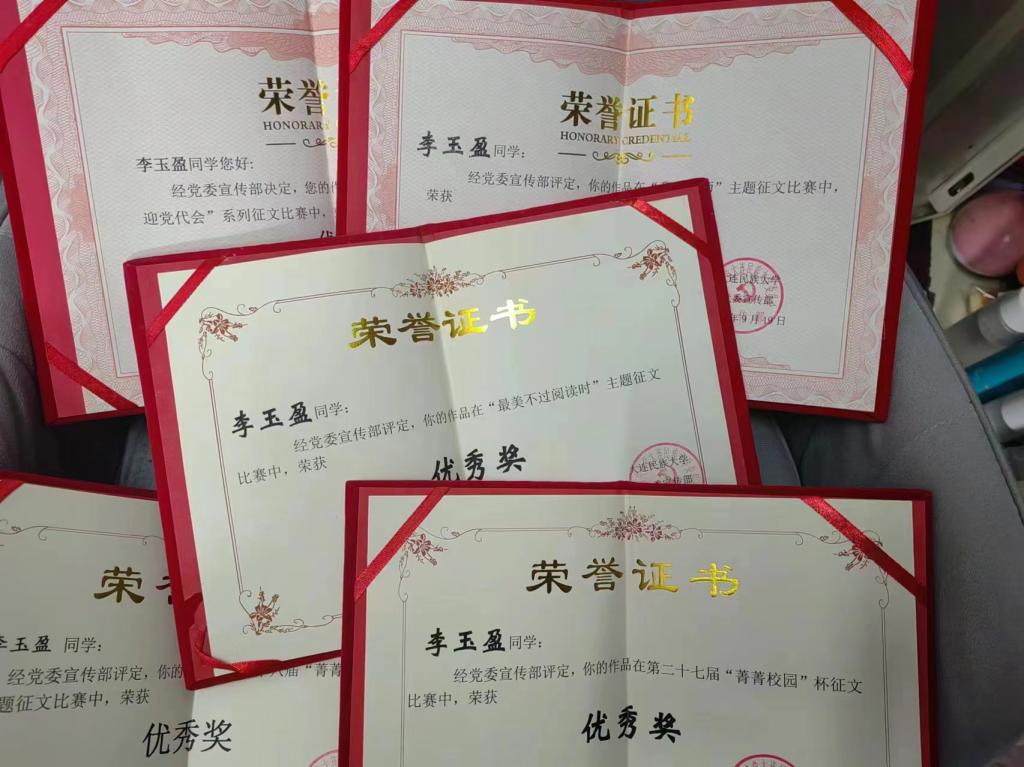 荣誉
HONORARY
李玉盈同学您好:
经党委宣传部决定,您的
迎党代会”系列征文比赛中,
荣誉证书
HONORARY CREDENTIAL
李玉盈同学:
经党委宣传部评定,你的作品在“ 主题征文比赛中,
荣获
连民族大学
委宣传部
9月19日
荣誉证书
李玉盈同学:
经党委宣传部评定,你的作品在“最美不过阅读时”主题征文
比赛中,荣获
优秀奖
大连民族大学
荣
李玉盈 同学:
经党委宣传部评定,你的 八届“菁菁
题征文比赛中,荣获
优秀奖
荣誉证书
李玉盈同学:
经党委宣传部评定,你的作品在第二十七届“菁菁校园”杯征文
比赛中,荣获
优秀奖